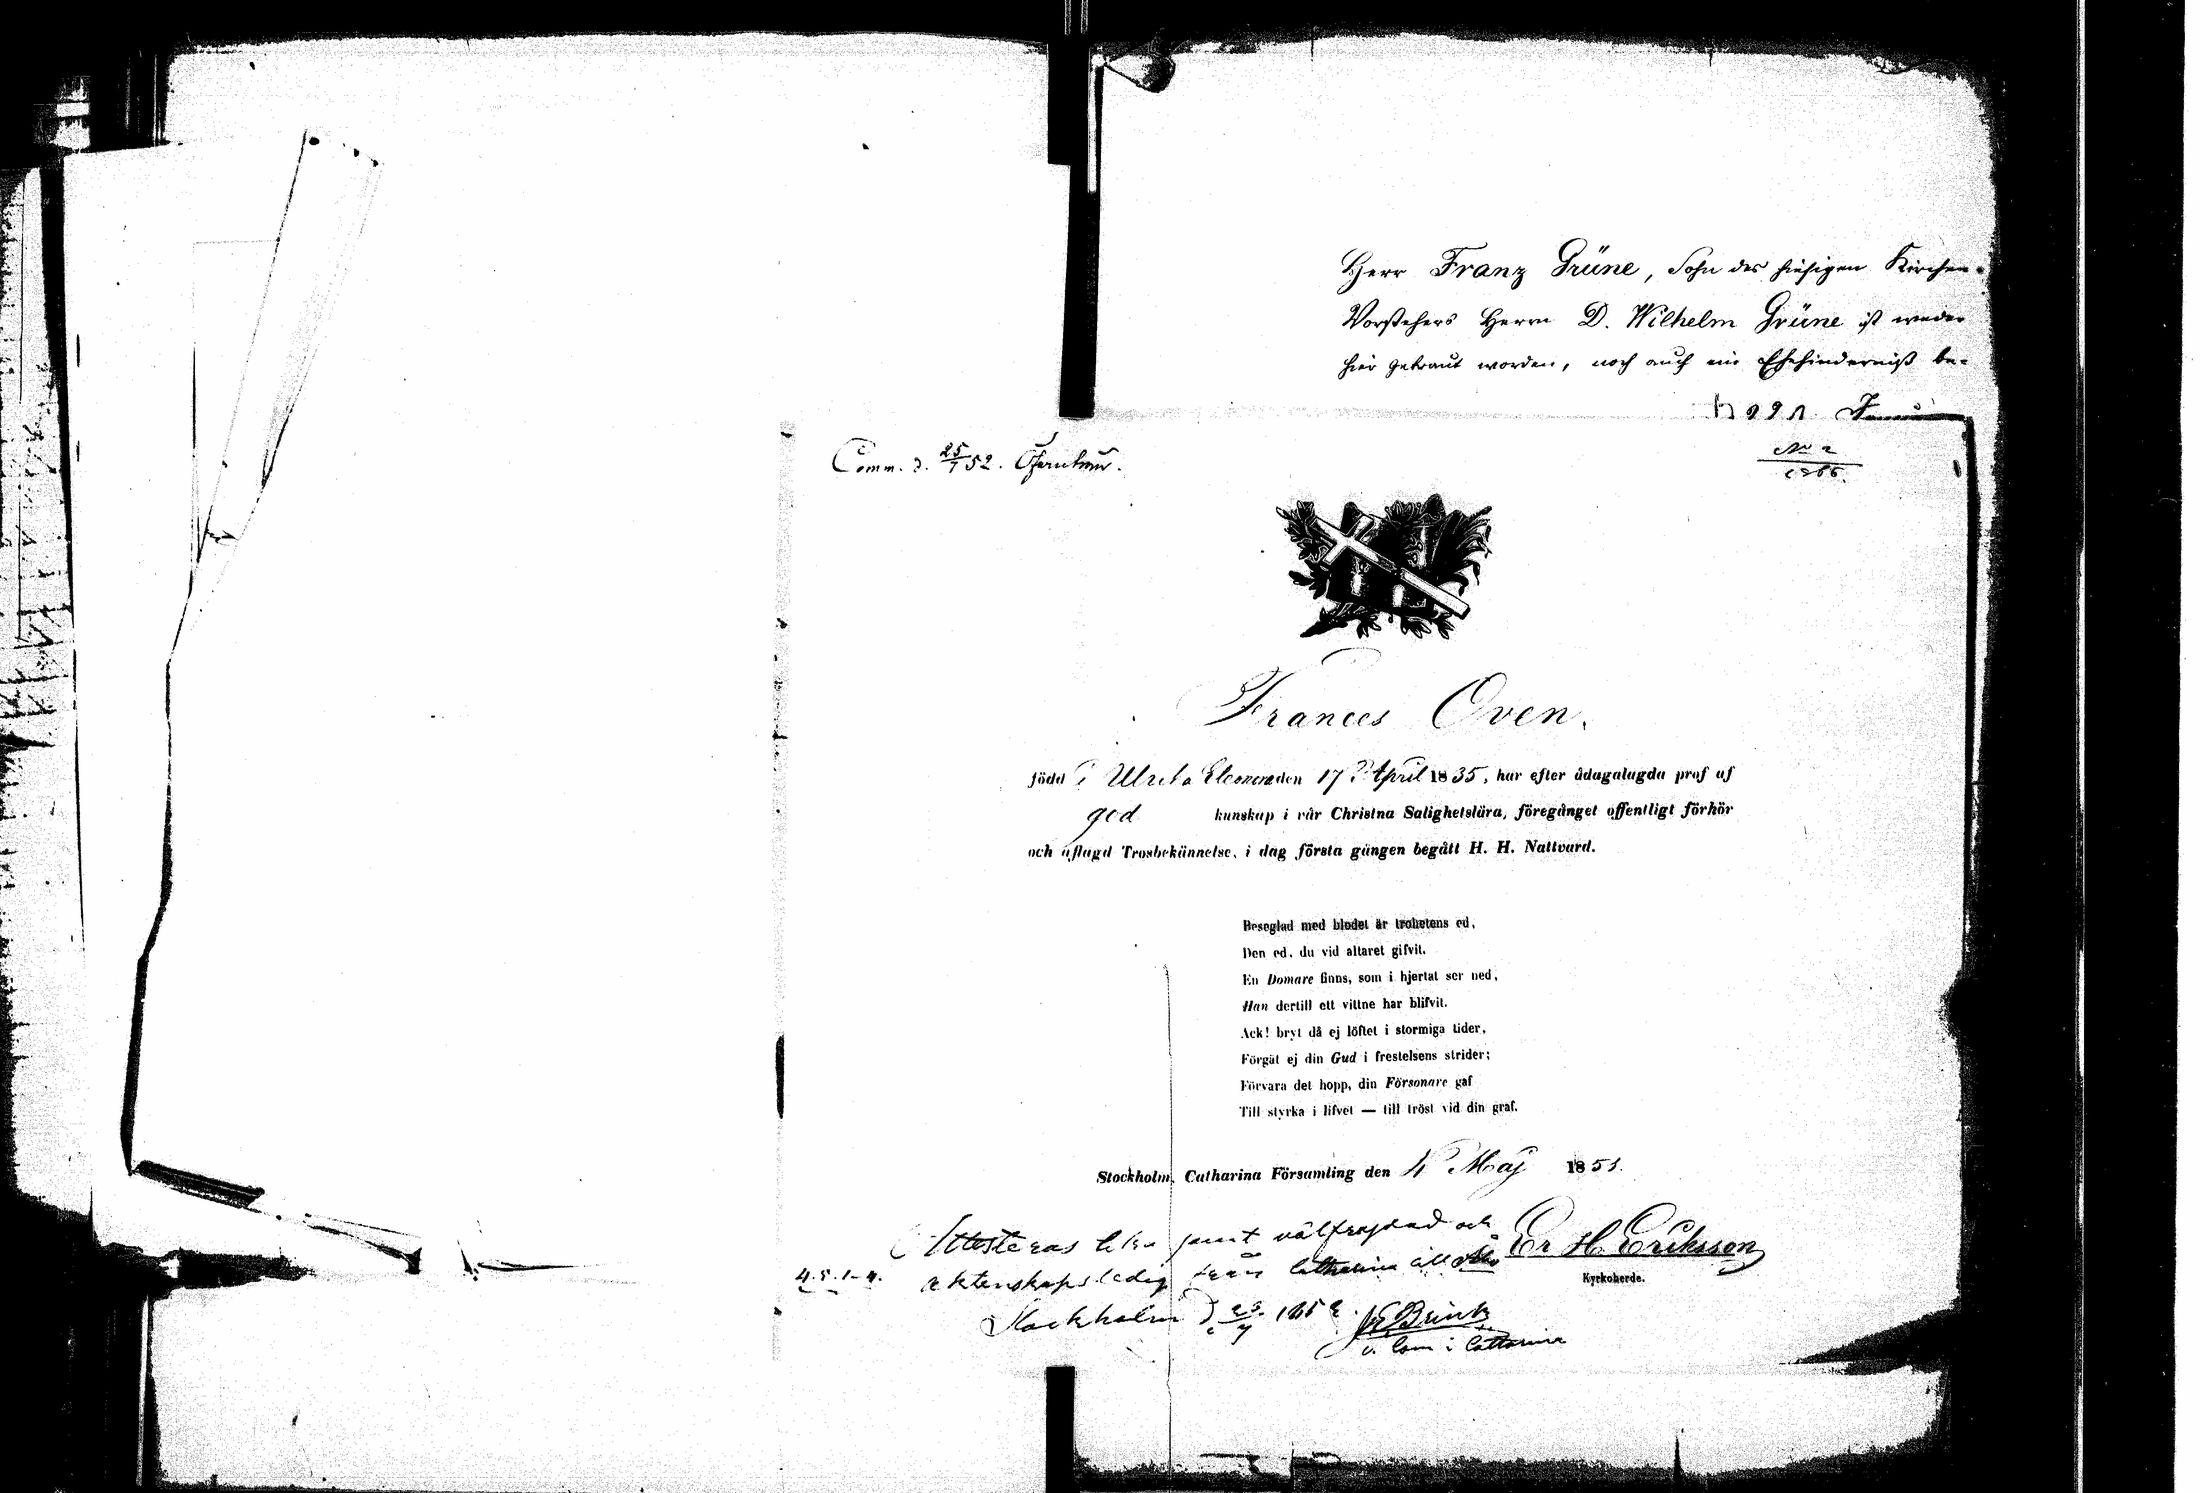 Herr Franz Grüne, Sohn des hiesigen Kirchen-
Vorstehers Herrn D. Wilhelm Grüne ist weder
hier getraut worden, noch auch ein Ehehinderniß be-
Comm. d. 25/7 52.
No 2
Frances Oven.
född i Ulrika Eleonora den 17 April 1835, har efter ådagalagda prof af
god kunskap i vår Christna Salighetslära, föregånget offentligt förhör
och aflagd Trosbekännelse, i dag första gången begått H. H. Nattvard.
Beseglad med blodet är trohetens ed,
Den ed, du vid altaret gifvit.
En Domare finns, som i hjertat ser ned,
Han dertill ett vittne har blifvit.
Ack! bryt då ej löftet i stormiga tider,
Förgät ej din Gud i frestelsens strider;
Förvara det hopp, din Försonare gaf
Till styrka i lifvet — till tröst vid din graf.
Stockholm, Catharina Församling den 4 Maj 1851.
Attesteras tika samt välfrejdad och
Er H Eriksson
Kyrkoherde.
4.5.1-4. äktenskapsledig från Catharina till
Stockholm d 23/7 1852. Brink
v. Com i Catharina